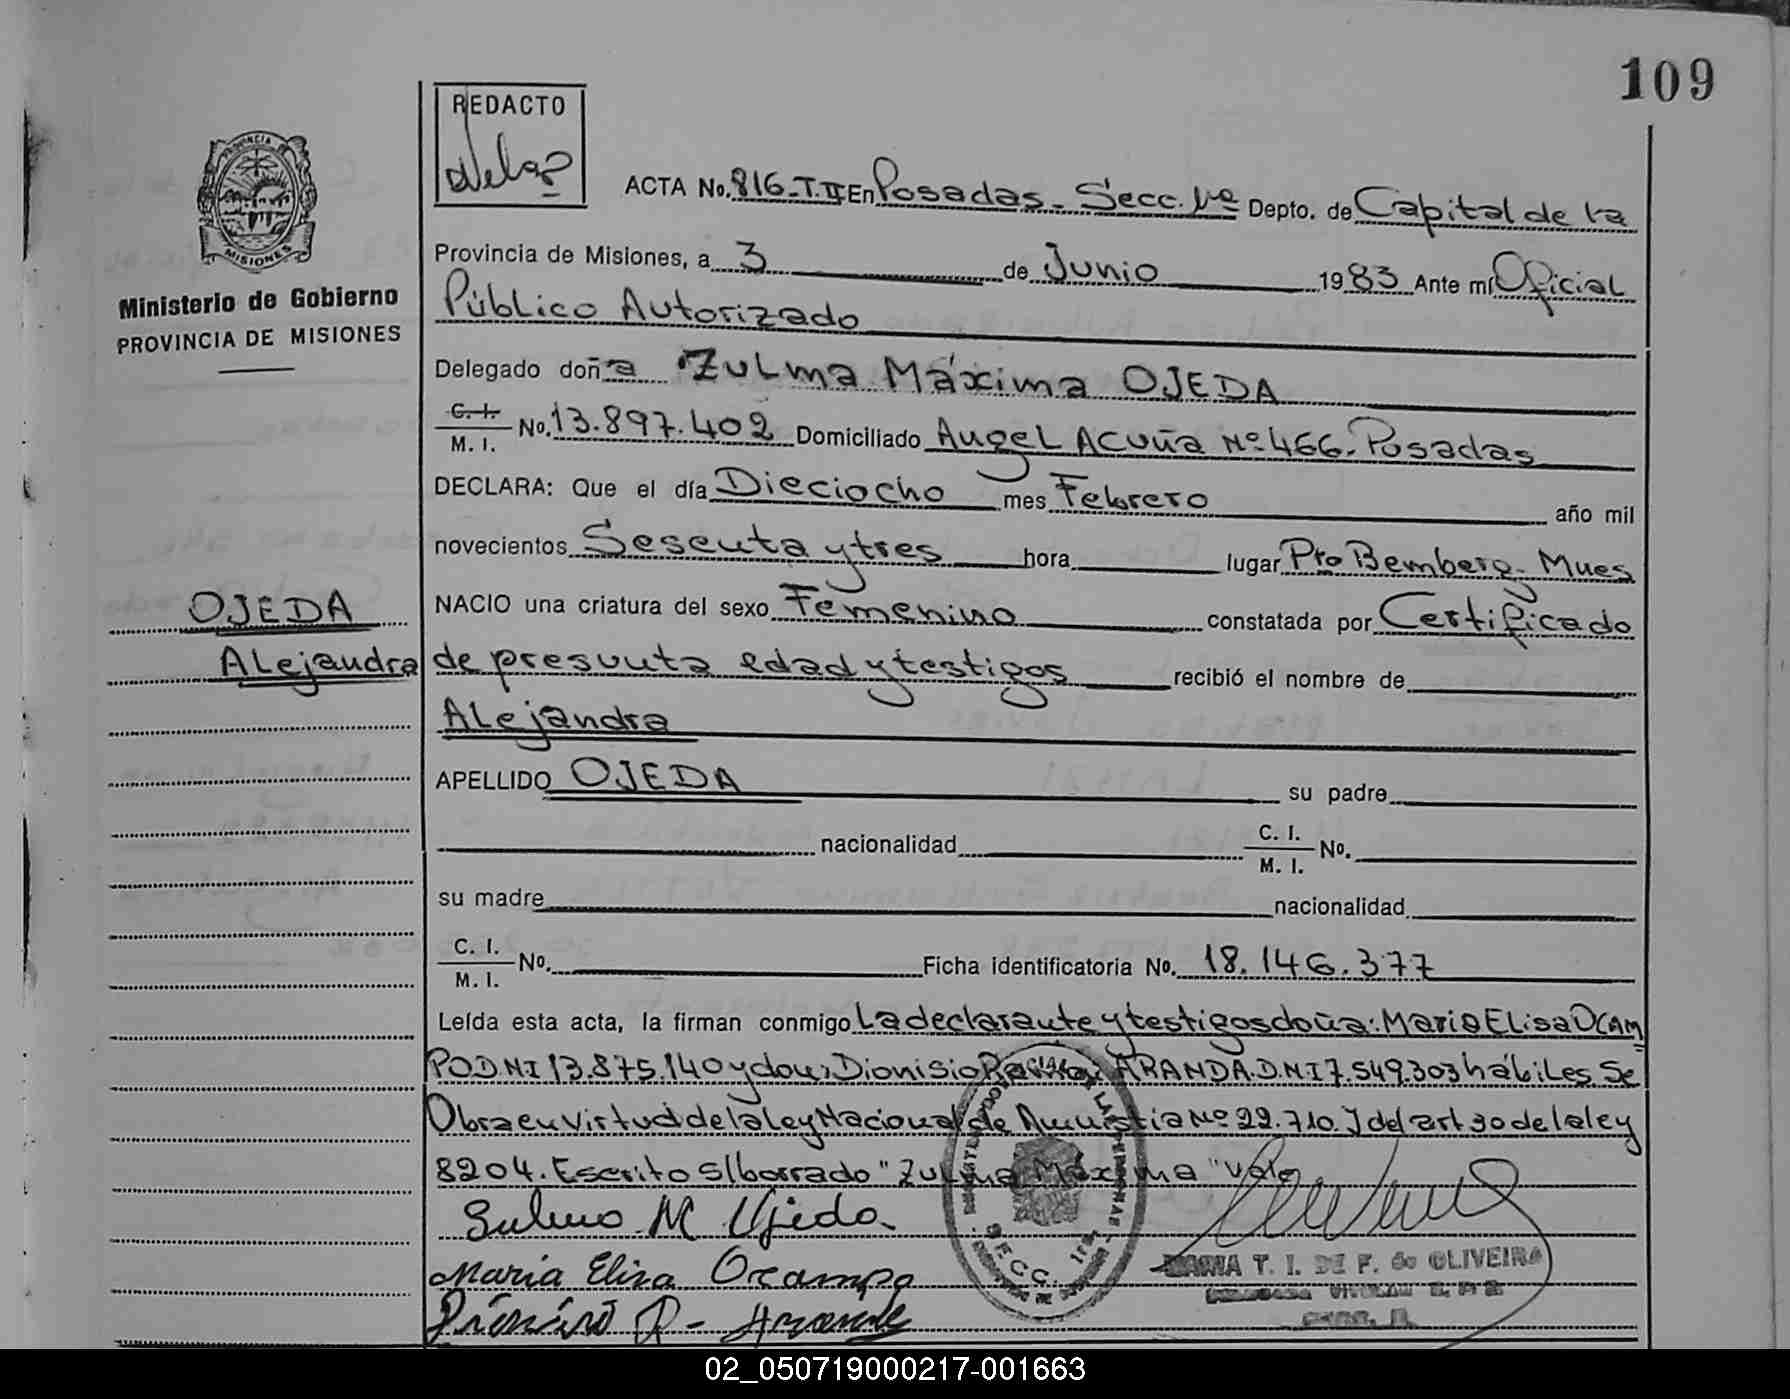 109
REDACTO
PROVINCIA DE
MISIONES
Ministerio de Gobierno
PROVINCIA DE MISIONES
ACTA No. 816-T.II En Posadas - Secc. 1ra Depto. de Capital de la
Provincia de Misiones, a 3 de Junio 1983 Ante mí Oficial
Público Autorizado
Delegado doña Zulma Máxima OJEDA
C. I.
M. I. No. 13.897.402 Domiciliado Angel Acuña Nº 466. Posadas
DECLARA: Que el día Dieciocho mes Febrero año mil
novecientos Sesenta y tres hora lugar Pto Bemberg. Mnes
NACIO una criatura del sexo Femenino constatada por Certificado
OJEDA
Alejandra
de presunta edad y testigos recibió el nombre de
Alejandra
APELLIDO OJEDA su padre
nacionalidad C. I.
M. I. No.
su madre nacionalidad
C. I.
M. I. No. Ficha identificatoria No. 18.146.377
Leída esta acta, la firman conmigo La declarante y testigos doña: Maria Elisa OCAM
PO DNI 13.875.140 y don: Dionisio ARANDA. D.N.I 7.549.303 hábiles. Se
Obra en virtud de la ley Nacional de Amnistia Nº 22.710. y del art 30 de la ley
8204. Escrito s/borrado "Zulma Máxima" vale
Zulma M Ojeda
Maria Elisa Ocampo
Dionisio R - Aranda
SECC. 1ra.
MARIA T. I. DE F. de OLIVEIRA
02_050719000217-001663